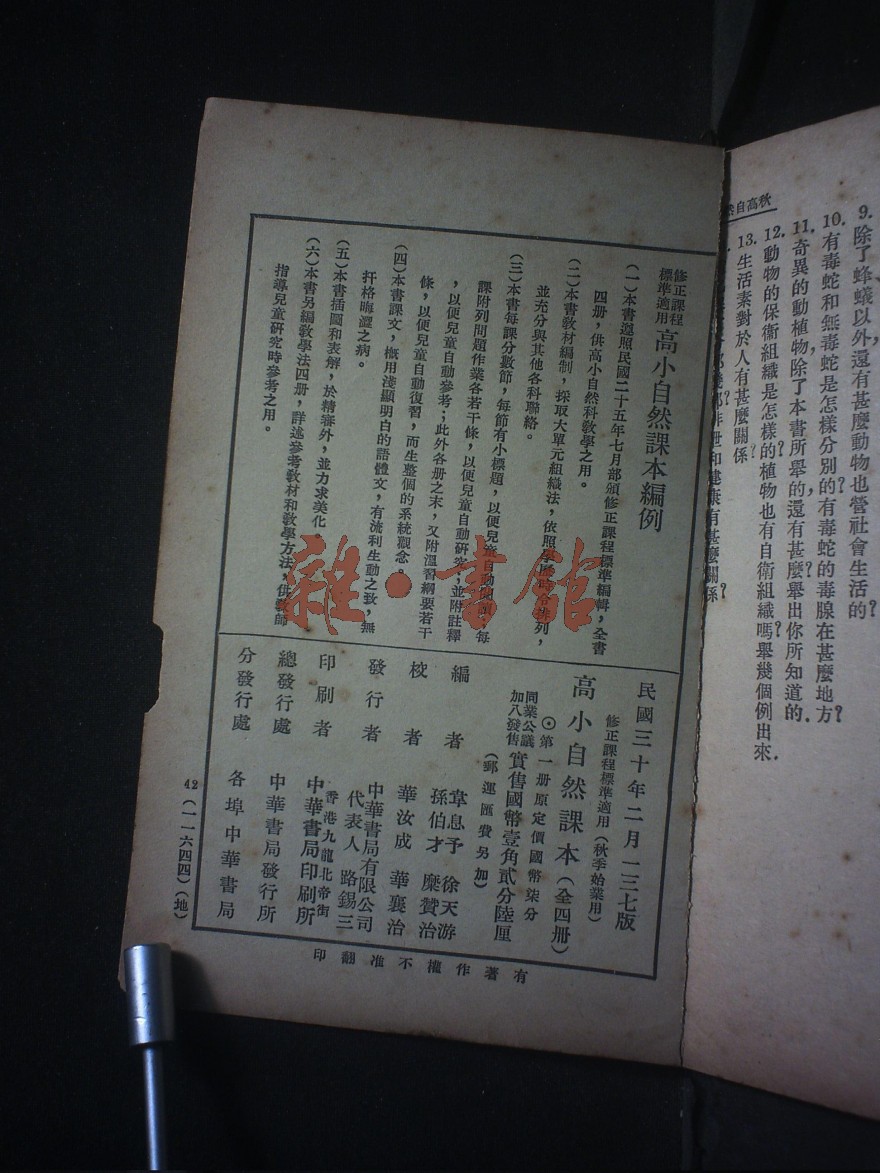 秋高自然
9.除了蜂蟻以外,還有甚麼動物也營社會生活的?
10.有毒蛇和無毒蛇是怎樣分別的?有毒蛇的毒腺在甚麼地方?
11.奇異的動植物,除了本書所舉的,還有甚麼?舉出你所知道的.
12.動物的保衛組織是怎樣的?植物也有自衛組織嗎?舉幾個例出來.
13.生活素對於人有甚麼關係?
和健康有甚麼關係?
修正課程標準適用 高小自然課本編例
(一)本書遵照民國二十五年七月部頒修正課程標準編輯,全書
四册,供高小自然科教學之用。
(二)本書教材編制,採取大單元組織法,依照學歷時令排列,
並充分與其他各科聯絡。
(三)本書每課分數節,每節有小標題,以便兒童自動閱讀;每
課附列問題作業各若干條,以便兒童自動研究;並附註釋
,以便兒童自動參考;此外各册之末,又附温習綱要若干
條,以便兒童自動復習,而生整個的系統觀念。
(四)本書課文,概用淺顯明白的語體文,有流利生動之致,無
扞格晦澀之病。
(五)本書插圖和表解,於精審外,並力求美化。
(六)本書另編教學法四册,詳述參考教材和教學方法,供教師
指導兒童研究時參考之用。
民國三十年二月一三七版
修正課程標準適用(秋季始業用)
高小自然課本(全四册)
⊙第一册原定價國幣柒分
同業公議加八發售 實售國幣壹角貳分陸厘
(郵運匯費另加)
編者 韋息予 徐天游
孫伯才 糜贊治
校者 華汝成 華襄治
發行者 中華書局有限公司
代表人 路錫三
印刷者 香港九龍北帝街
中華書局印刷所
總發行處 中華書局發行所
分發行處 各埠中華書局
42(一一六四四)(地)
有著作權不准翻印
雜·書館